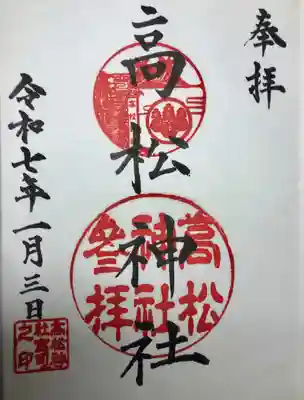 奉拝
高松神社
高松
神社
参拝
令和七年一月三日
高松神
社宮司
之印